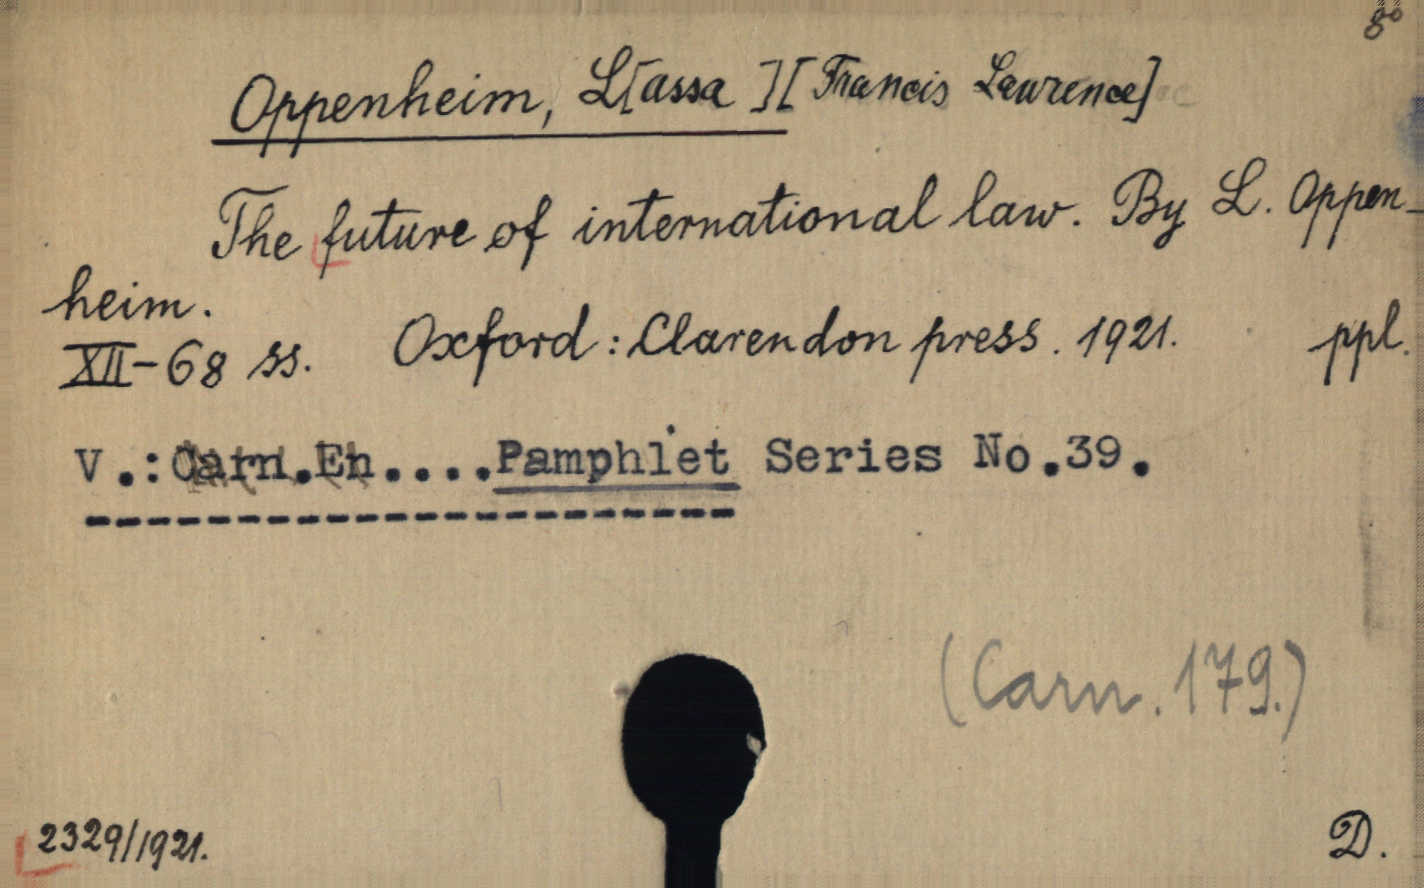 8°
Oppenheim, L[assa ][Francis Lawrence]
The future of international law. By L. Oppen-
heim.
XII-68 ss. Oxford: Clarendon press. 1921. ppl.
V.:Carn.En....Pamphlet Series No.39.
(Carn. 179.)
2329/1921. D.